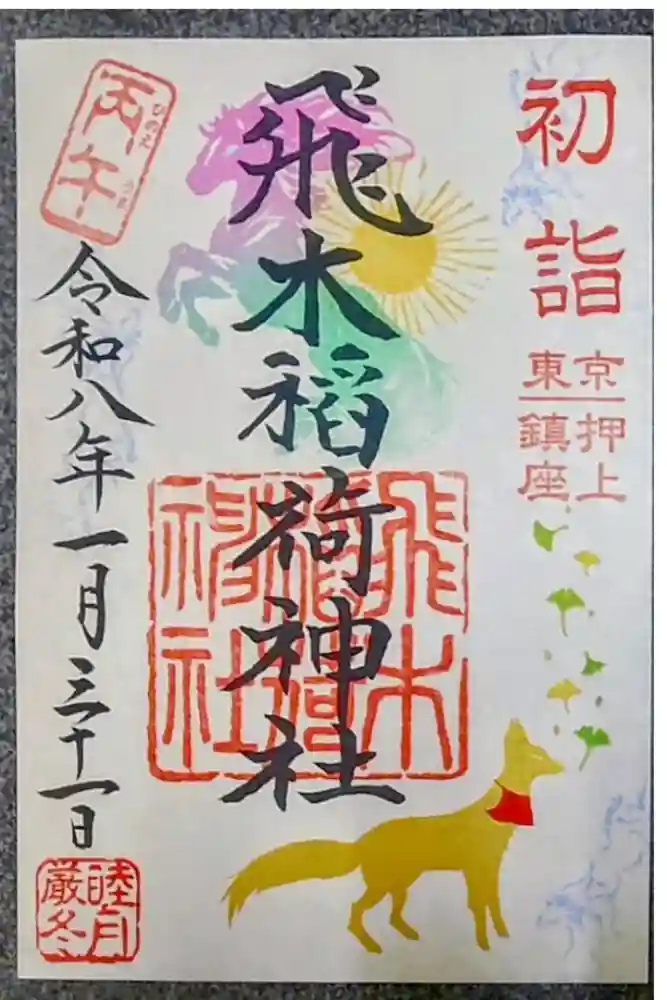 初詣
東京押上
鎮座
飛木稲荷神社
飛木
稲荷
神社
丙午
ひのえ
うま
令和八年一月三十一日
睦月
厳冬